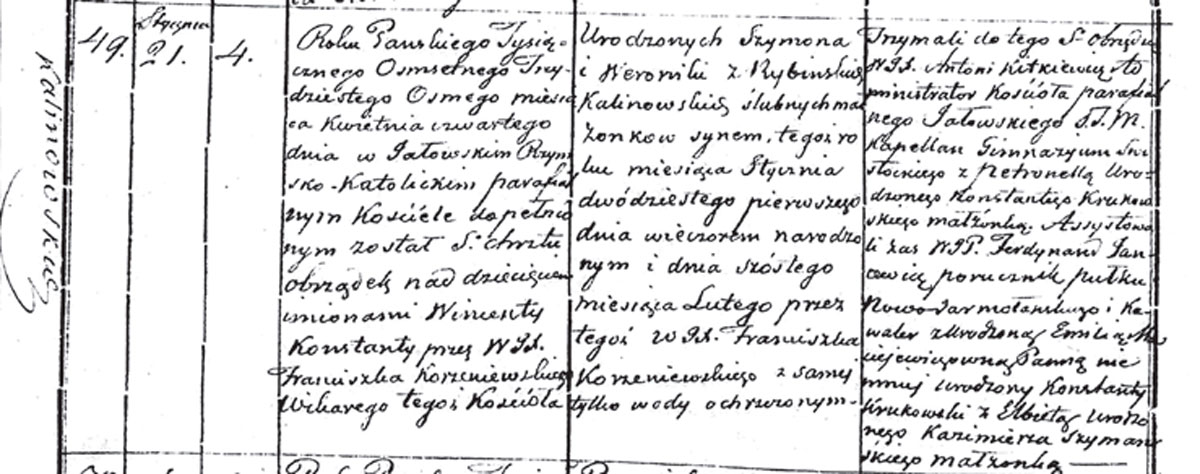 Kalinowskiej
49.
Stycznia
21.
4.
Roku Panskiego Tysią-
cznego Osmsetnego Trzy-
dziestego Osmego miesią
ca Kwietnia czwartego
dnia w Jałowskim Rzym
sko-Katolickim parafial
nym Kościele dopełnio
nym został S. chrztu
obrządek nad dziecięciem
imionami Wincenty
Konstanty przez WJX.
Franciszka Korzeniewskiego
Wikarego tegoż Kościoła
Urodzonych Szymona
i Weroniki z Rybinskich
Kalinowskich ślubnych mał
żonkow synem, tegoż ro
ku miesiąca Stycznia
dwódziestego pierwszego
dnia wieczorem narodzo
nym i dnia szóstego
miesiąca Lutego przez
tegoż WJX. Franciszka
Korzeniewskiego z samej
tylko wody ochrzczonym.-
Trzymali do tego S. obrzędu
WJX. Antoni Kitkiewicz Ad
ministrator Kościoła parafial
nego Jałowskiego
Kapellan Gimnazyum Swi
słockiego z Petronellą Uro-
dzonego Konstantego Krukow
skiego małżonką. Assystowa
li zas WJP. Ferdynand Jan-
cewicz porucznik pułku
Nowo-Jarmołanskiego i Ka-
waler z Urodzoną Emilią Ma
ciejewiczowną Panną nie
mniej Urodzony Konstanty
Krukowski z Elbietą Urodzo
nego Kazimierza Szyman
skiego małżonką